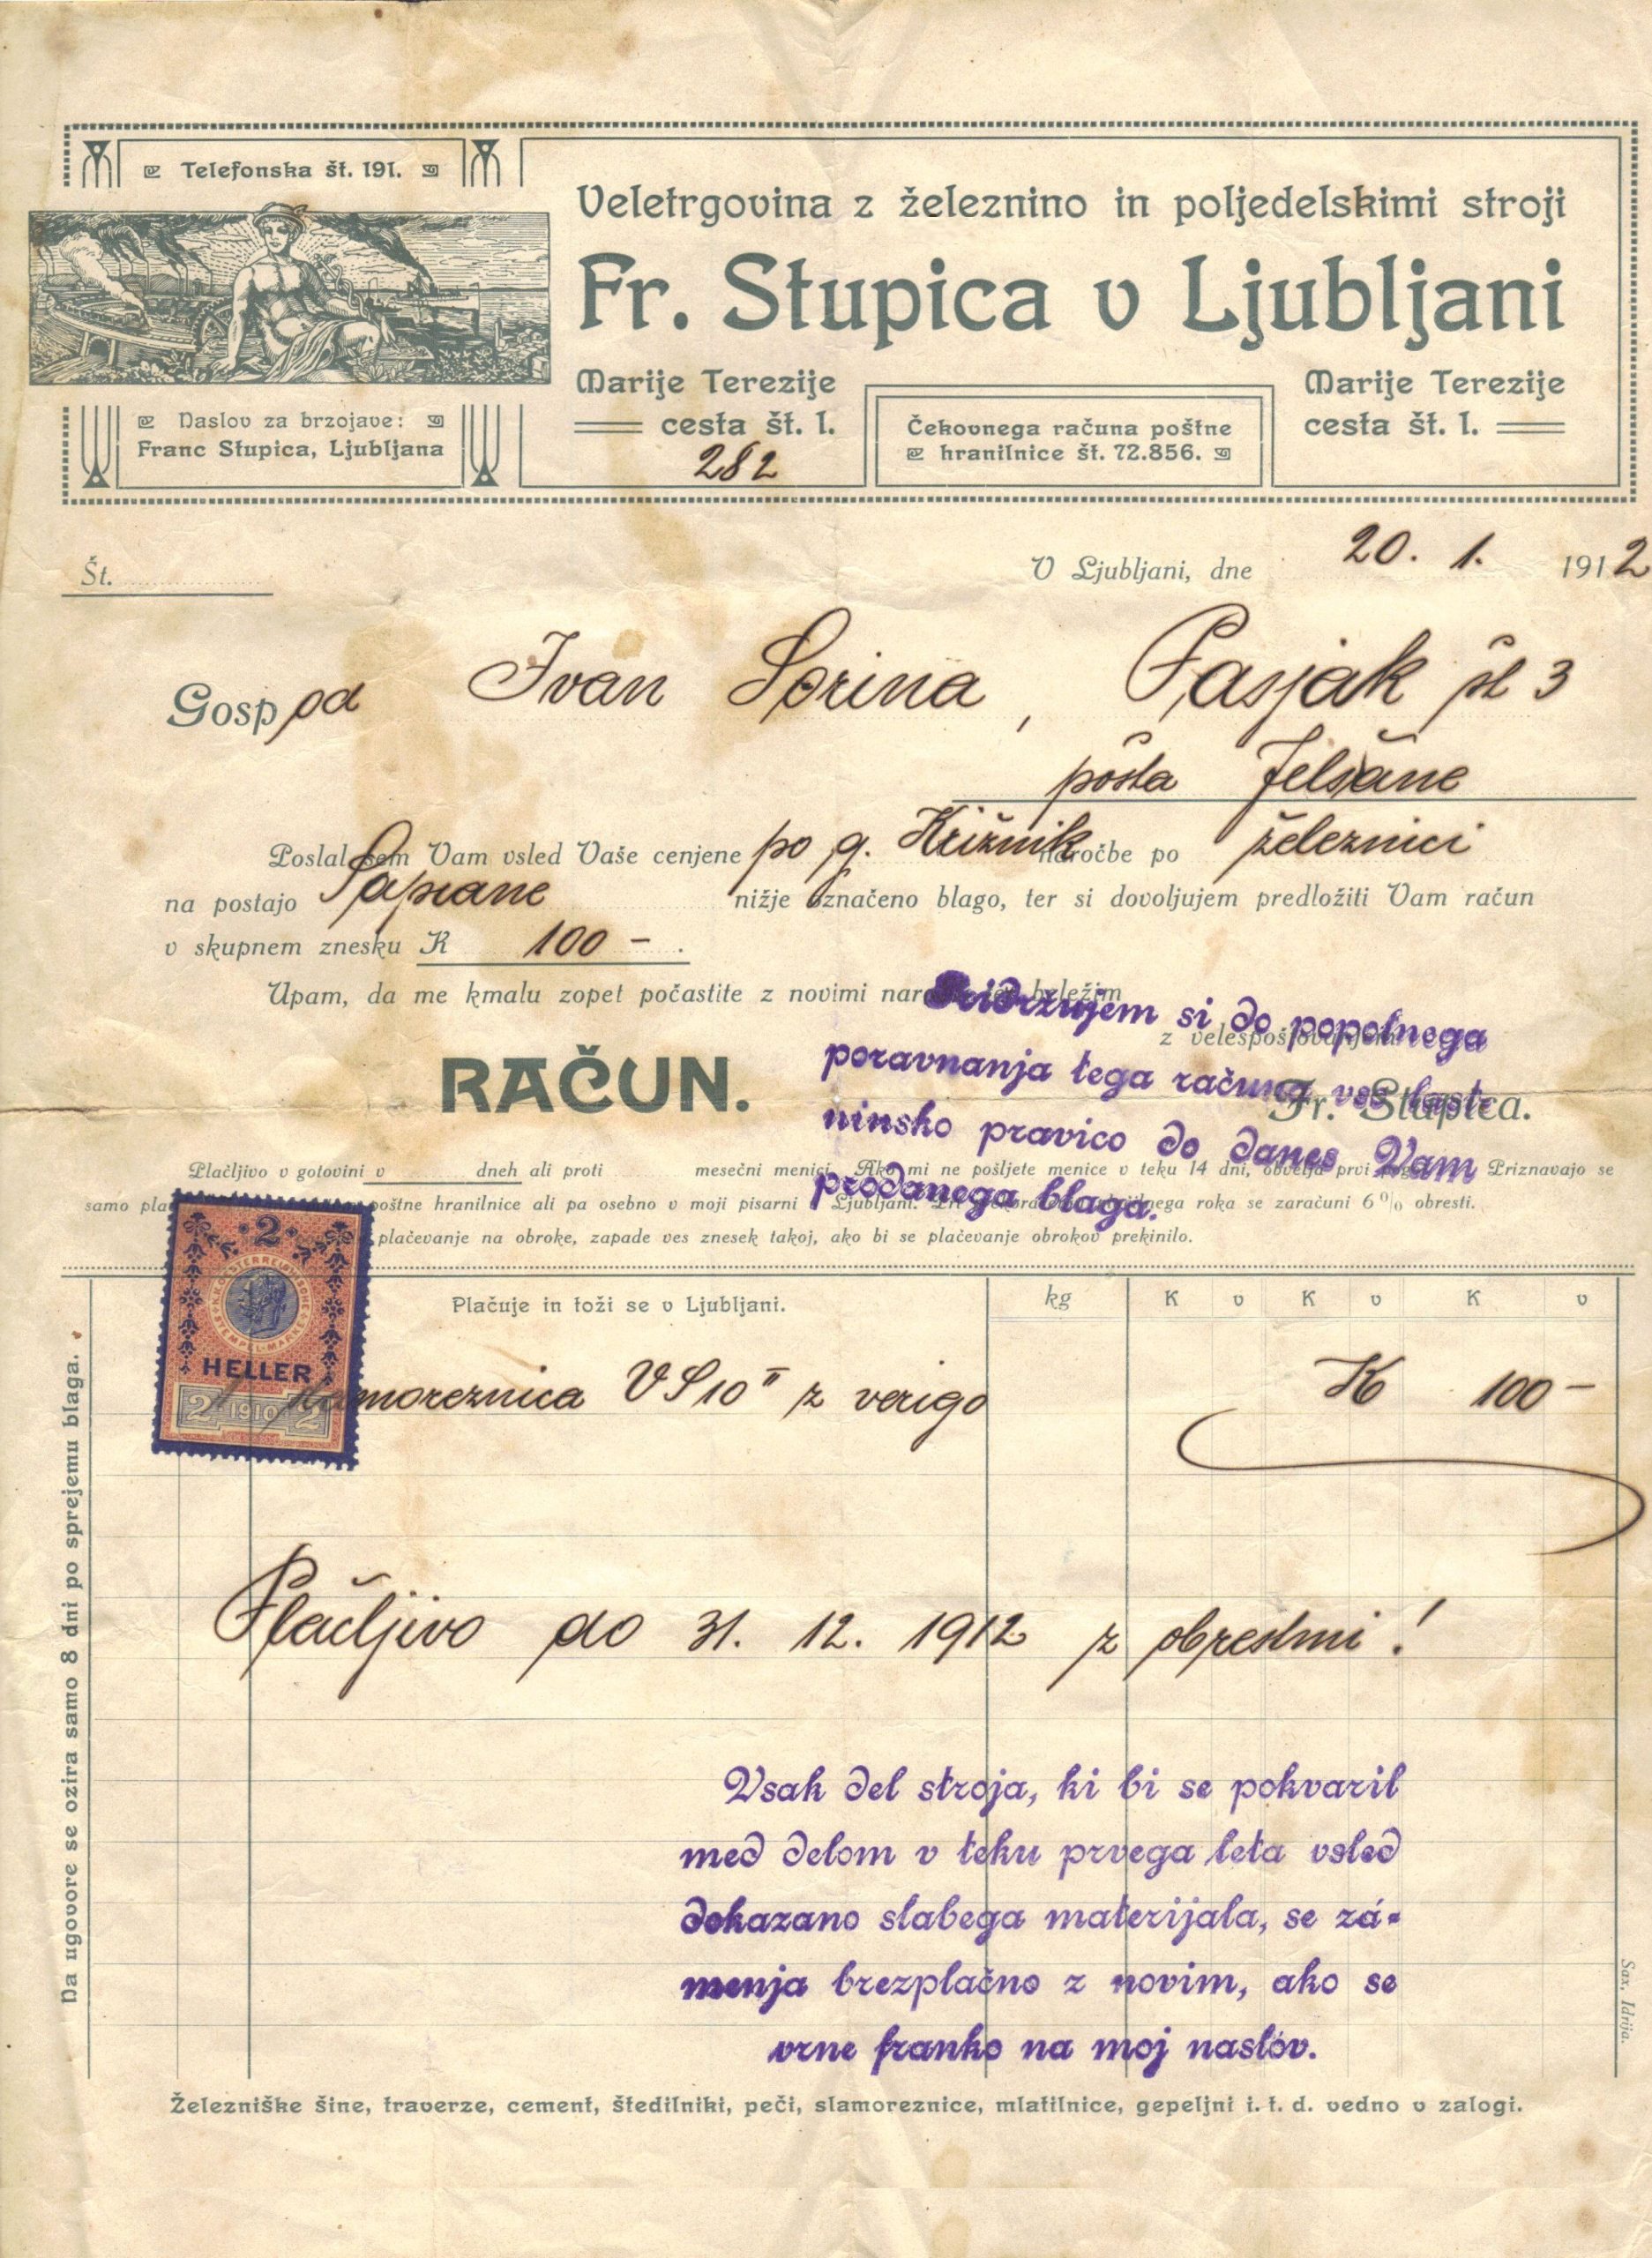 Telefonska št. 191.
Veletrgovina z železnino in poljedelskimi stroji
Fr. Stupica v Ljubljani
Marije Terezije
cesta št. 1.
Marije Terezije
cesta št. 1.
Naslov za brzojave:
Franc Stupica, Ljubljana
Čekovnega računa poštne
hranilnice št. 72.856.
282
Št.
V Ljubljani, dne 20. 1. 1912
Gospod Ivan Sorina, Pasjak št 3
pošta Jelšane
Poslal sem Vam vsled Vaše cenjene po g. Križnik naročbe po železnici
na postajo Sapiane nižje označeno blago, ter si dovoljujem predložiti Vam račun
v skupnem znesku K 100 - .
Upam, da me kmalu zopet počastite z novimi beležim
z velespoštovanjem
Fr. Stupica.
Pridržujem si do popolnega
poravnanja tega računa vso last-
ninsko pravico do danes Vam
prodanega blaga.
RAČUN.
Plačljivo v gotovini v dneh ali proti mesečni menici. Ako mi ne pošljete menice v teku 14 dni, obvelja prvi Priznavajo se
samo poštne hranilnice ali pa osebno v moji pisarni v Ljubljani. roka se zaračuni 6% obresti.
plačevanje na obroke, zapade ves znesek takoj, ako bi se plačevanje obrokov prekinilo.
2
K.K. OSTERREICHISCHE
STEMPEL-MARKE
HELLER
2 1910 2
Plačuje in toži se v Ljubljani.
kg K v K v K v
1 slamoreznica VS 10 II z verigo K 100 -
Plačljivo do 31. 12. 1912 z obrestmi!
Vsak del stroja, ki bi se pokvaril
med delom v teku prvega leta vsled
dokazano slabega materijala, se za-
menja brezplačno z novim, ako se
vrne franko na moj naslov.
Na ugovore se ozira samo 8 dni po sprejemu blaga.
Sax, Idrija.
Železniške šine, traverze, cement, štedilniki, peči, slamoreznice, mlatilnice, gepeljni i. t. d. vedno v zalogi.